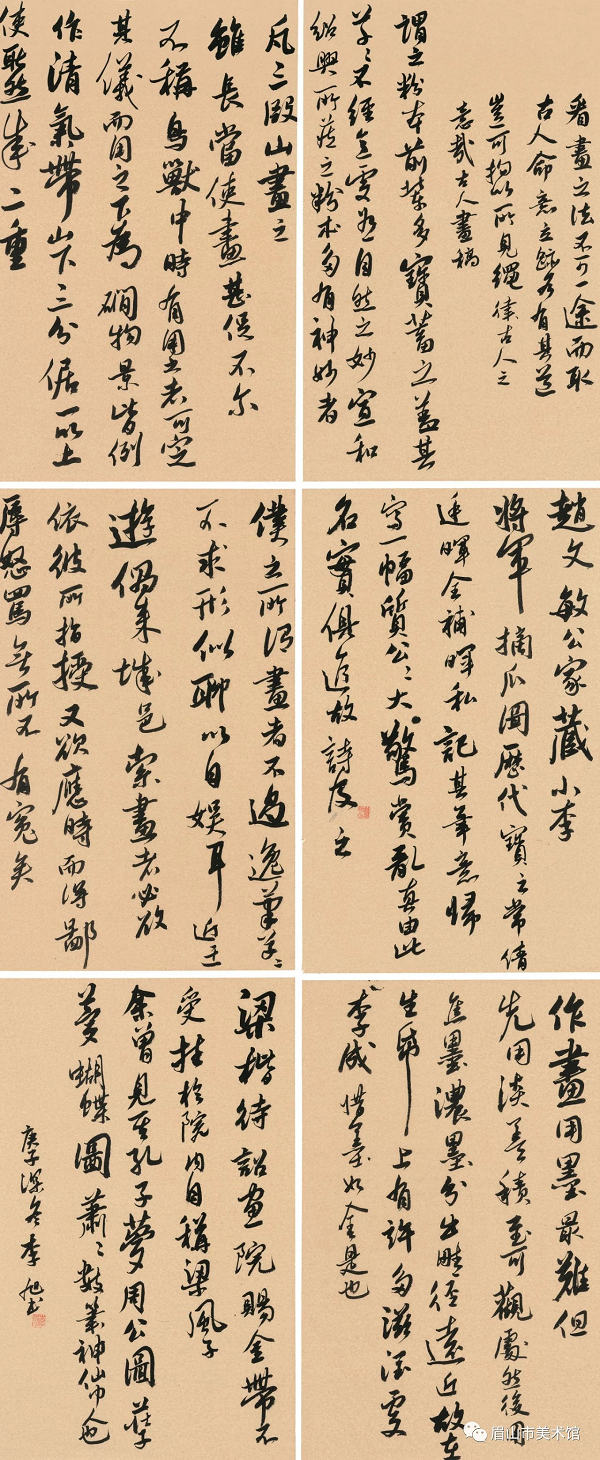 看畫之法不可一途而取
古人命意立跡各有其道
豈可拘以所見繩律古人之
意哉古人畫稿
謂之粉本前輩多寶蓄之蓋其
草〻不經意處有自然之妙宣和
紹興所藏之粉本多有神妙者
凡三段山畫之
雖長當使畫甚促不尔
不稱鳥獸中時有用之者可定
其儀而用之下為磵物景皆例
作清氣帶山下三分倨一以上
使耿然成二重
趙文敏公家藏小李
將軍摘瓜圖歷代寶之常倩
廷暉全補暉私記其筆意歸
寫一幅質公〻大驚賞亂真由此
名實俱進故詩及之
僕之所謂畫者不過逸筆草〻
不求形似聊以自娛耳近迂
遊偶來城邑索畫者必欲
依彼所指授又欲應時而得鄙
辱怒罵無所不有冤矣
作畫用墨最難但
先用淡墨積至可觀處然後用
焦墨濃墨分出畦徑遠近故在
生紙上有許多滋潤處
李成惜墨如金是也
梁楷待詔畫院賜金帶不
受挂於院內自稱梁風子
余曾見其孔子夢周公圖莊子
夢蝴蝶圖蕭〻數筆神仙也
庚子深冬李旭書
眉山市美术馆